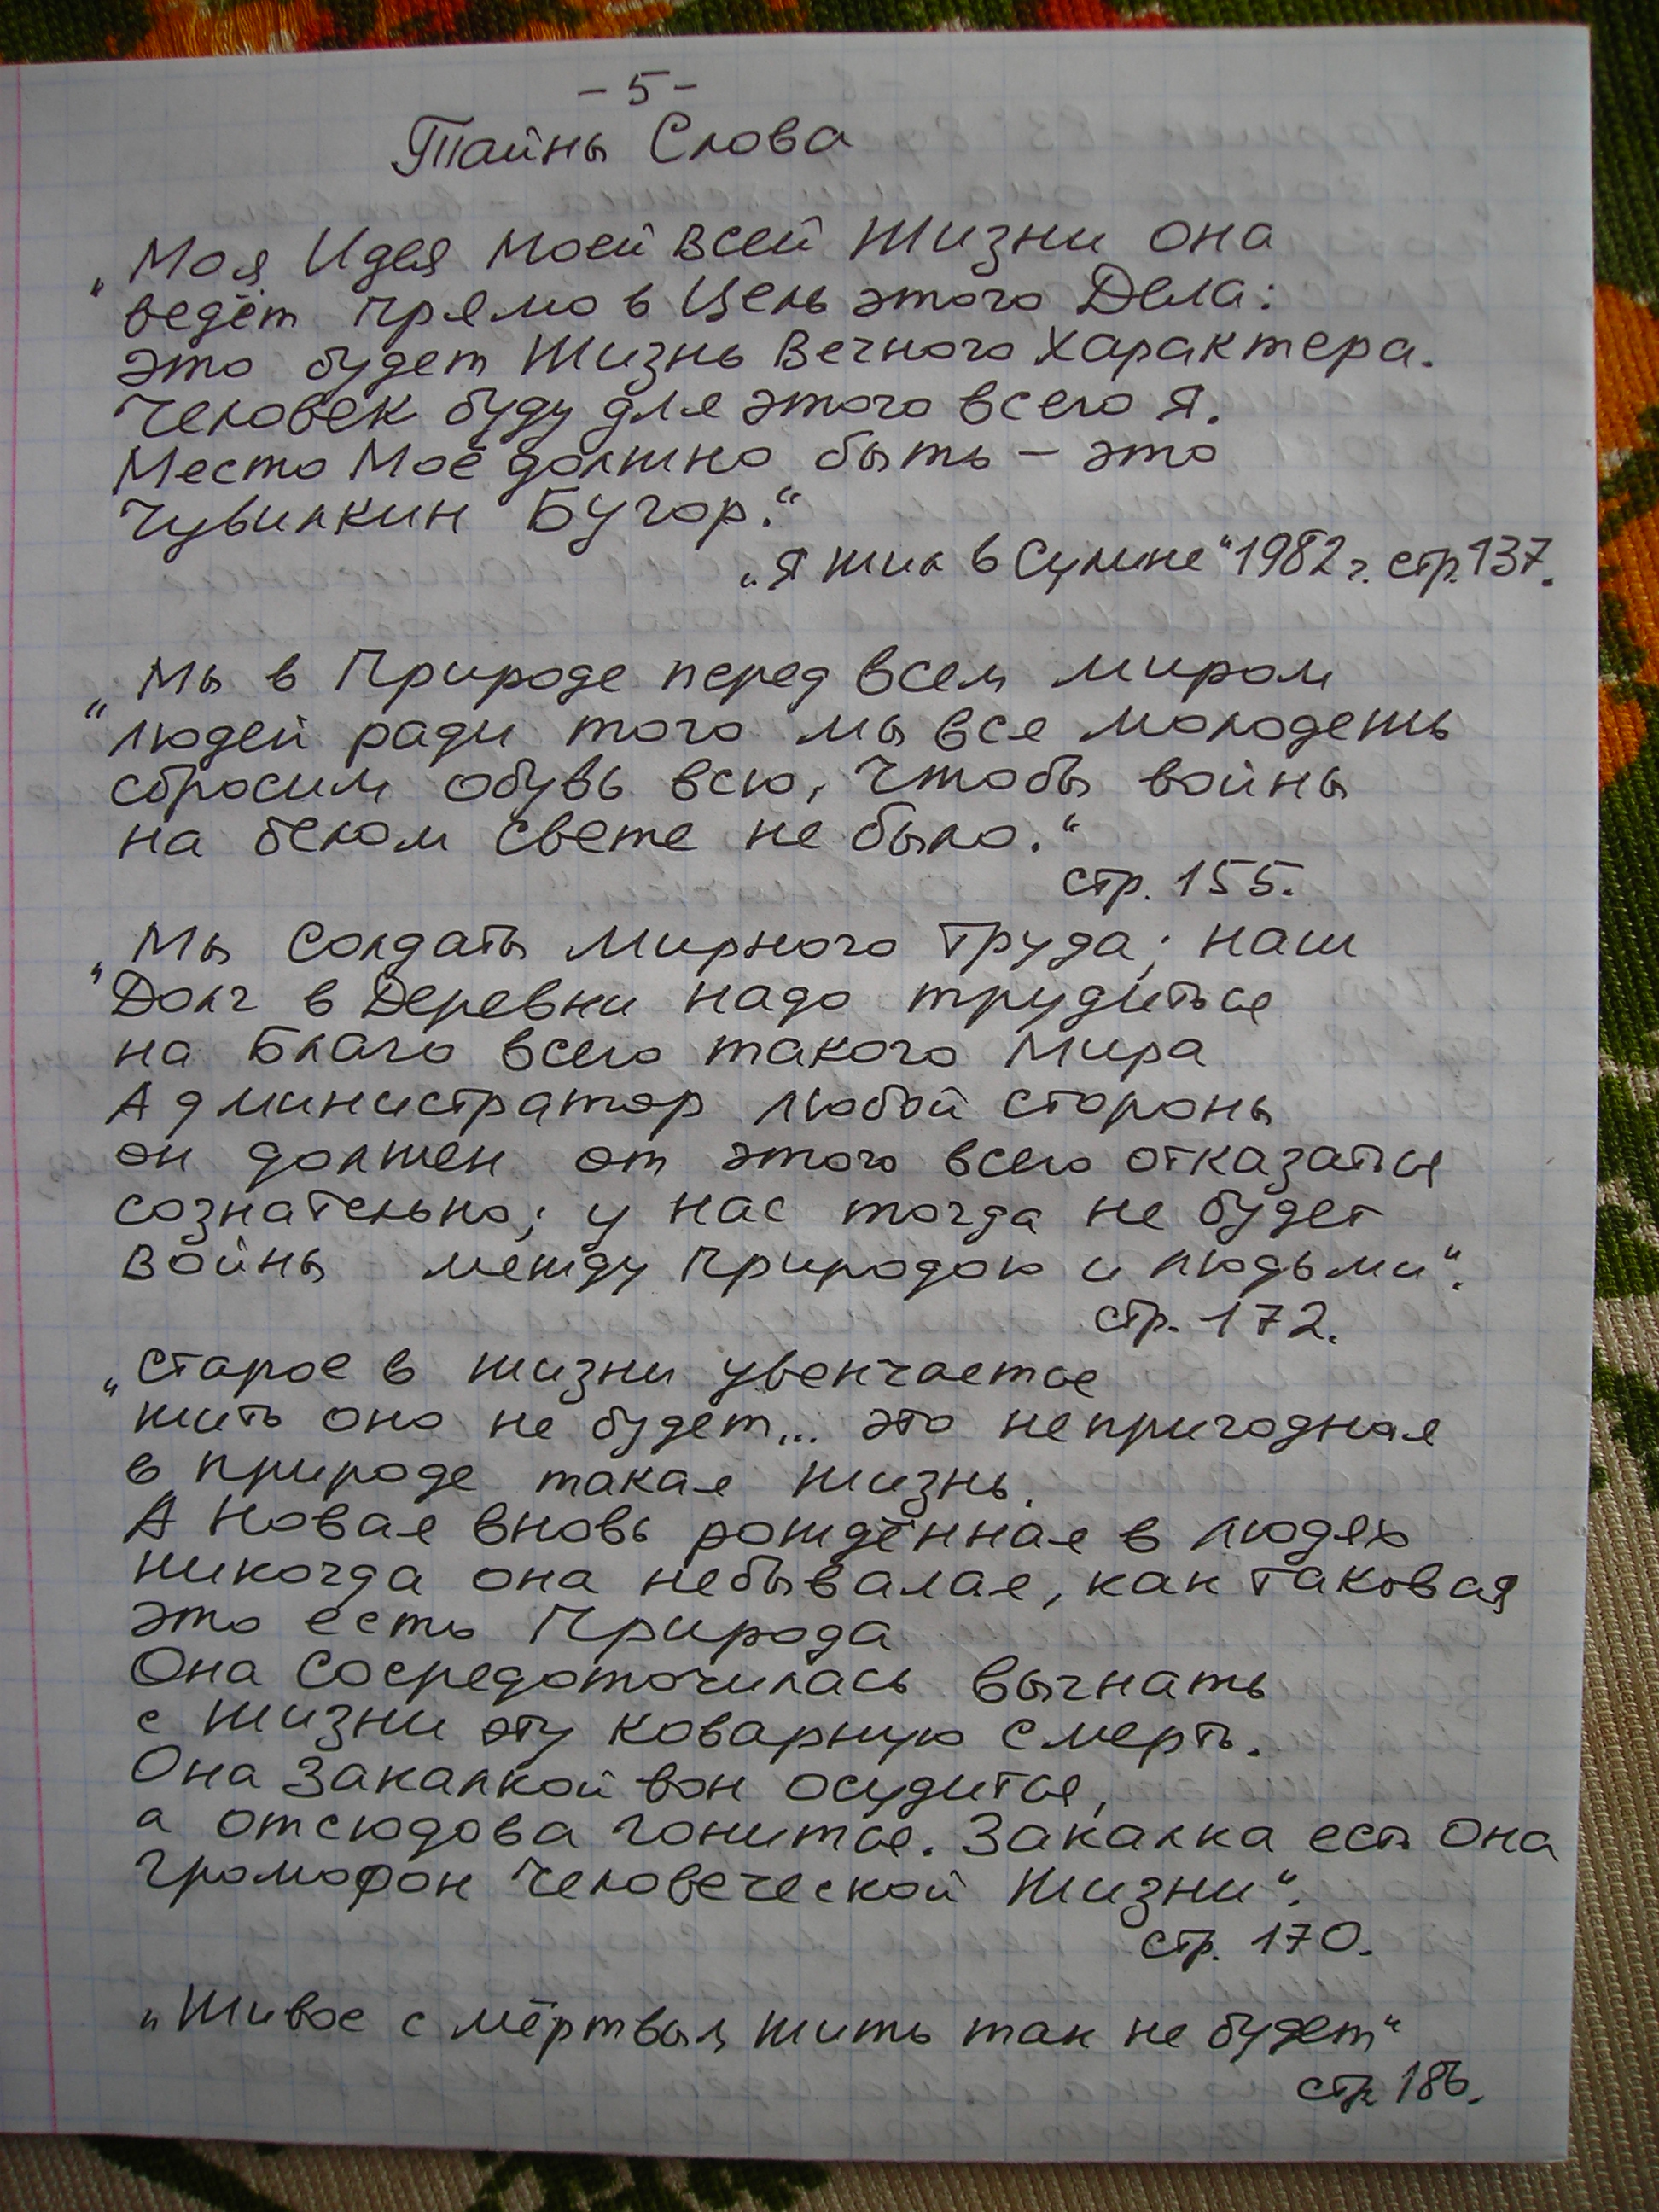 - 5 -
Тайны Слова
„Моя Идея моей всей Жизни она
ведёт прямо в Цель этого Дела:
это будет Жизнь Вечного Характера.
Человек буду для этого всего Я.
Место Моё должно быть – это
Чувилкин Бугор.“
„Я жил в Сумне“ 1982 г. стр. 137.
„Мы в Природе перед всем миром
людей ради того мы все молодежь
сбросим обувь всю, чтобы войны
на белом свете не было.“
стр. 155.
„Мы Солдаты мирного труда; наш
Долг в Деревни надо трудиться
на Благо всего такого Мира
Администратор любой стороны
он должен от этого всего отказаться
сознательно; у нас тогда не будет
войны между Природою и людьми“.
стр. 172.
„Старое в жизни увенчается
жить оно не будет... это непригодная
в природе такая жизнь.
А Новая вновь рождённая в людях
никогда она небывалая, как таковая
это есть Природа
Она Сосредоточилась выгнать
с Жизни эту коварную смерть.
Она Закалкой вон осудится,
а отсюдова гонится. Закалка есть Она
громофон Человеческой Жизни“.
стр. 170.
„Живое с мёртвым жить так не будет“
стр. 186.